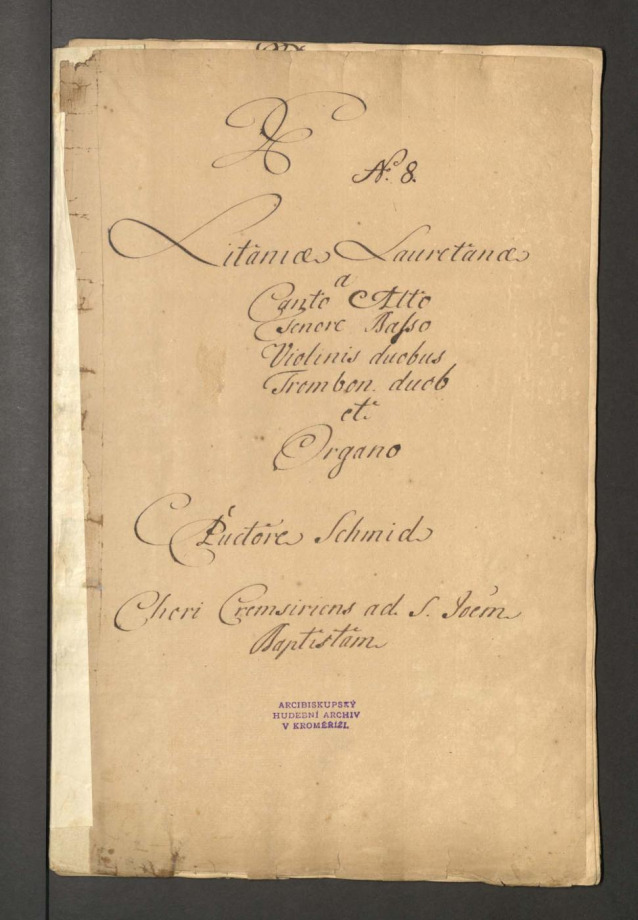 No. 8.
Litaniæ Lauretanæ
a
Canto Alto
Tenore Basso
Violinis duobus
Trombon. duob
et.
Organo
Auctore Schmid
Chori Cremsiriens ad. S. Joem
Baptistam
ARCIBISKUPSKÝ
HUDEBNÍ ARCHIV
V KROMĚŘÍŽI.